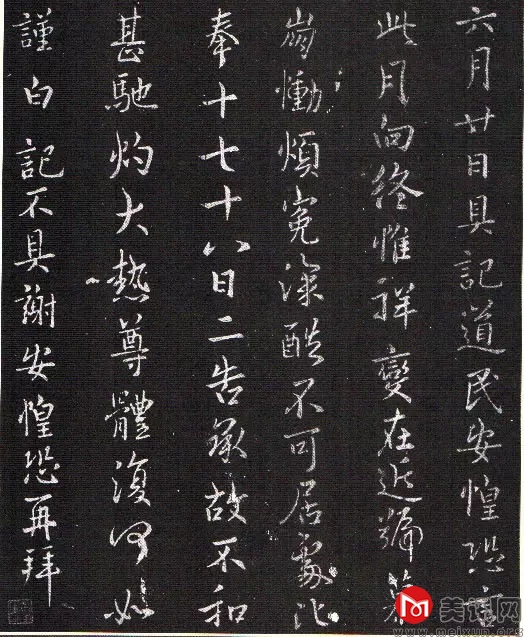 六月廿日具記道民安惶恐言
此月向終惟祥變在近號慕
崩慟煩冤深酷不可居處比
奉十七十八日二告承故不和
甚馳灼大熱尊體復何如
謹白記不具謝安惶恐再拜
美讯网